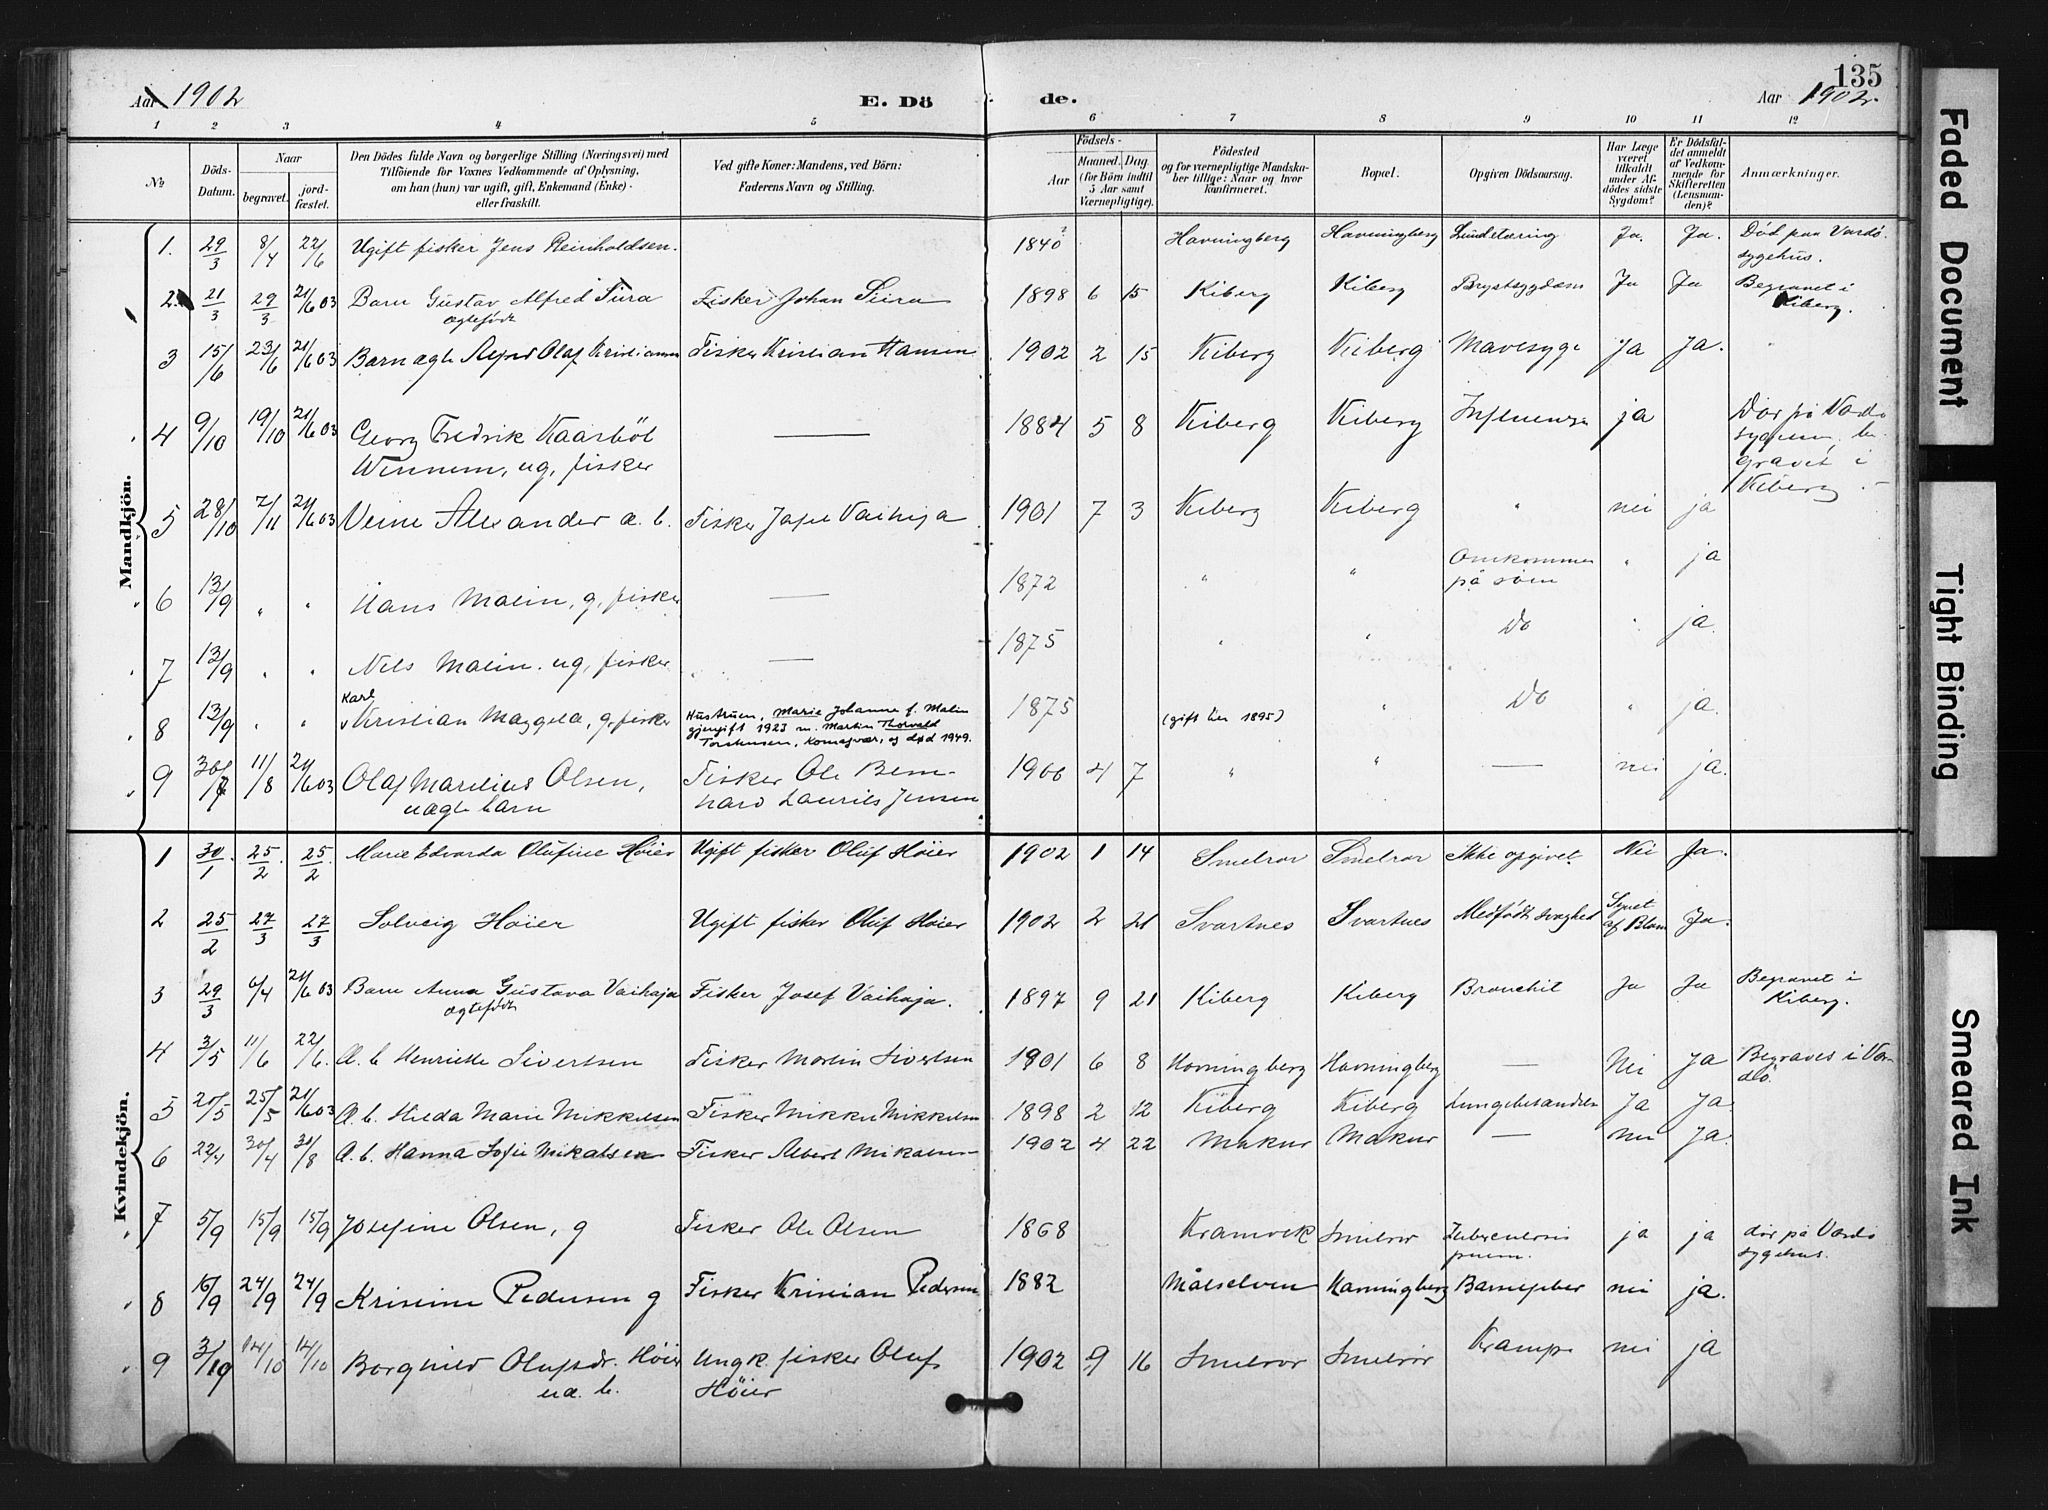 135
Aar 1902 E. Dö de. Aar 1902.
1 2 3 4 5 6 7 8 9 10 11 12
No Döds-Datum. Naar begravet. jord-fæstet. Den Dödes fulde Navn og borgerlige Stilling (Næringsvei) med Tilföiende for Voxnes Vedkommende af Oplysning, om han (hun) var ugift, gift, Enkemand (Enke) - eller fraskilt. Ved gifte Koner: Mandens, ved Börn: Faderens Navn og Stilling. Födsels- Aar Maaned. Dag. (for Börn indtil 5 Aar samt Værnepligtige). Födested og for værnepligtige Mandskaber tillige: Naar og hvor konfirmeret. Bopæl. Opgiven Dödsaarsag. Har Læge været tilkaldt under Afdödes sidste Sygdom? Er Dödsfaldet anmeldt af Vedkommende for Skifteretten (Lensmanden)? Anmærkninger.
Mandkjön.
1. 29/3 8/4 22/6 Ugift fisker Jens Reinholdsen. 1840? Havningberg Havningberg Lungetæring Ja. Ja. Död paa Vardö sygehus.
2. 21/3 29/3 21/6 03 Barn Gustav Alfred Siira ægtefödt Fisker Johan Siira 1898 6 15 Kiberg Kiberg Brystsygdom Ja Ja Begravet i Kiberg.
3 15/6 23/6 21/6 03 Barn ægte Alfred Olaf Kristiansen Fisker Kristian Hansen 1902 2 15 Kiberg Kiberg Mavesyge Ja Ja. "
4 9/10 19/10 21/6 03 Georg Fredrik Kaarböl Wennem, ug, fisker — 1884 5 8 Kiberg Kiberg Influensa ja Dör på Vardö sygehus, begravet i Kiberg.
5 28/10 7/11 21/6 03 Veine Alexander æ. b. Fisker Josef Vaihoja 1901 7 3 Kiberg Kiberg " nei ja
6 13/9 " " Hans Malin, g, fisker — 1872 " " Omkommen på söen " ja
7 13/9 " " Nils Malin, ug, fisker — 1875 " " Do " ja.
8 13/9 " " Karl Kristian Maggela, g, fisker Hustruen, Marie Johanne f. Malin gjengift 1923 m. Martin Thorvald Torstensen, Komagvær, og død 1949. 1875 (gift her 1895) " Do " ja.
9 30/7 11/8 21/6 03 Olaf Marelius Olsen, uægte barn Fisker Ole Bernhard Laurits Jensen 1900 4 7 " " — nei ja.
Kvindekjön.
1 30/1 25/2 25/2 Marie Edvarda Olufine Höier Ugift fisker Oluf Höier 1902 1 14 Smelror Smelror Ikke opgivet. Nei Ja.
2 25/2 27/3 27/3 Solveig Höier Ugift fisker Oluf Höier 1902 2 21 Svartnes Svartnes Medfödt svaghed Synet af Blom Ja.
3 29/3 6/4 21/6 03 Barn Anna Gustava Vaihoja ægtefödt Fisker Josef Vaihoja. 1897 9 21 Kiberg Kiberg Bronchit Ja Ja Begravet i Kiberg.
4 3/5 11/6 22/6. Æ. b Henriette Sivertsen Fisker Martin Sivertsen 1901 6 8 Havningberg Havningberg — Nei Ja Begraves i Vardö.
5 20/5 25/5 21/6 03 Æ. b. Hilda Marie Mikkelsen Fisker Mikkel Mikkelsen 1898 2 12 Kiberg Kiberg Lungebetændelse Ja Ja.
6 22/4 30/4 31/8 Æ. b. Hanna Sofie Mikalsen Fisker Albert Mikalsen 1902 4 22 Makur Makur — nei Ja.
7 5/9 15/9 15/9 Josefine Olsen, g Fisker Ole Olsen 1868 Kramvik Smelror Tuberculosis pulm. ja ja dör på Vardö sygehus.
8 16/9 24/9 24/9 Kristine Pedersen g Fisker Kristian Pedersen 1882 Målselven Havningberg Barselfeber nei ja.
9 3/10 12/10 12/10 Borghild Olufsdr. Höier uæ. b. Ungk. fisker Oluf Höier 1902 9 16 Smelror Smelror Krampe nei ja
Faded Document
Tight Binding
Smeared Ink